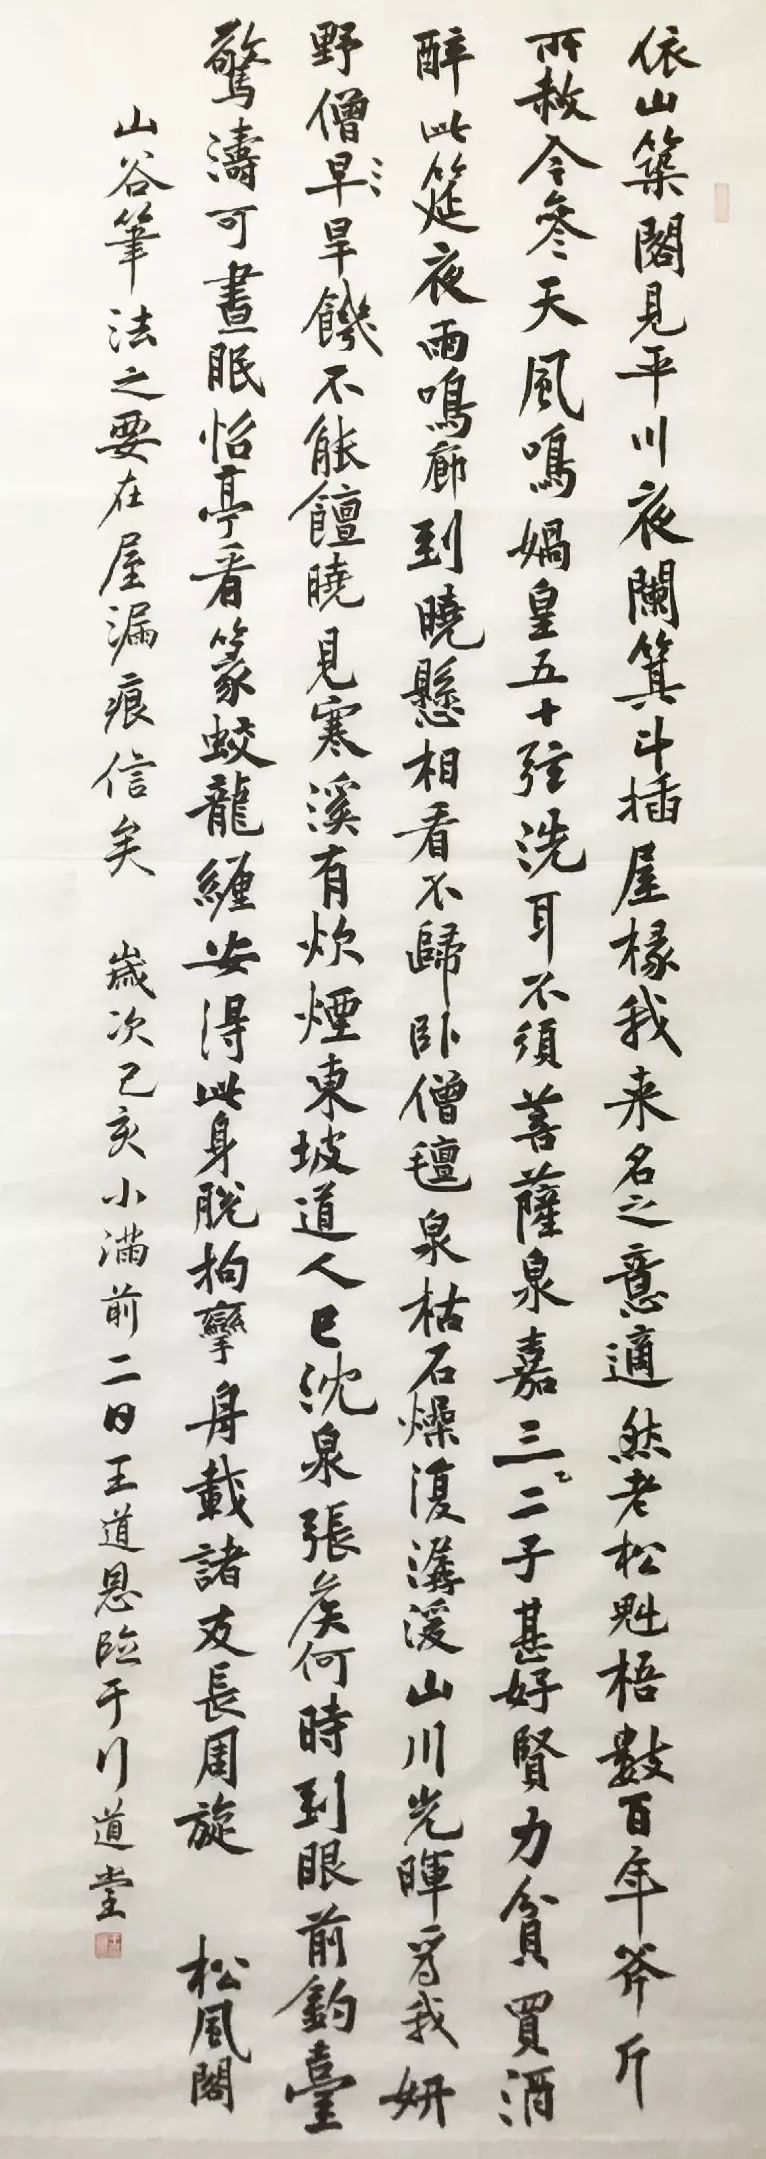 依山築閣見平川夜闌箕斗插屋椽我来名之意適然老松魁梧數百年斧斤
所赦今參天風鳴媧皇五十弦洗耳不須菩薩泉嘉三二子甚好賢力貧買酒
醉此筵夜雨鳴廊到曉懸相看不歸臥僧氊泉枯石燥復潺湲山川光暉爲我妍
野僧早旱饑不能饘曉見寒溪有炊煙東坡道人已沈泉張矦何時到眼前釣臺
驚濤可晝眠怡亭看篆蛟龍纏安得此身脫拘攣舟載諸友長周旋 松風閣
山谷筆法之要在屋漏痕信矣 歲次己亥小滿前二日王道恩臨于行道堂